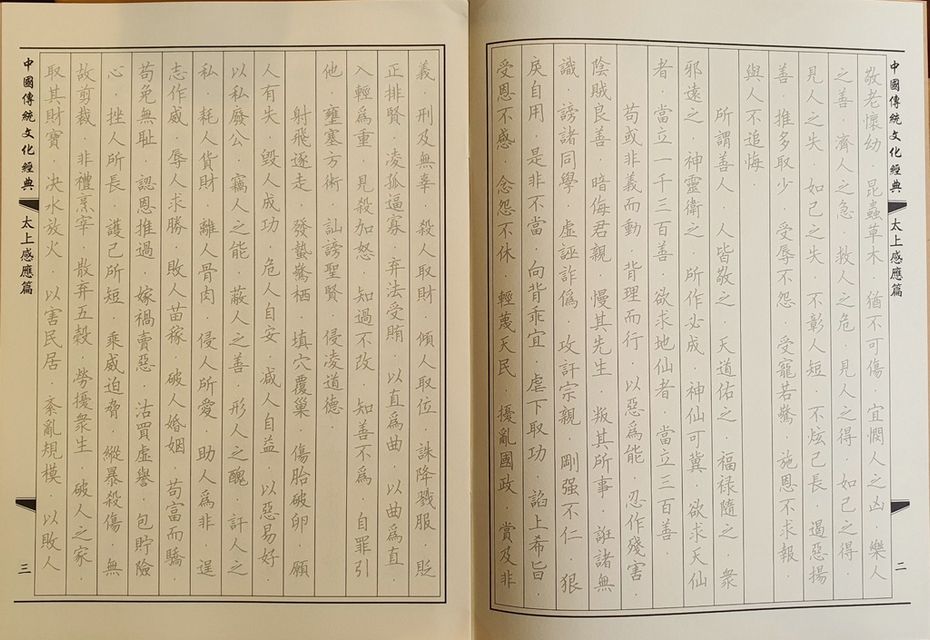 中國傳統文化經典 太上感應篇 二
敬老懷幼．昆蟲草木．猶不可傷．宜憫人之凶．樂人
之善．濟人之急．救人之危．見人之得．如己之得．
見人之失．如己之失．不彰人短．不炫己長．遏惡揚
善．推多取少．受辱不怨．受寵若驚．施恩不求報．
與人不追悔．
所謂善人．人皆敬之．天道佑之．福禄隨之．衆
邪遠之．神靈衛之．所作必成．神仙可冀．欲求天仙
者．當立一千三百善．欲求地仙者．當立三百善．
苟或非義而動．背理而行．以惡爲能．忍作殘害．
陰賊良善．暗侮君親．慢其先生．叛其所事．誑諸無
識．謗諸同學．虛誣詐僞．攻訐宗親．剛强不仁．狠
戾自用．是非不當．向背乖宜．虐下取功．諂上希旨．
受恩不感．念怨不休．輕蔑天民．擾亂國政．賞及非
義．刑及無辜．殺人取財．傾人取位．誅降戮服．貶
正排賢．凌孤逼寡．弃法受賂．以直爲曲．以曲爲直．
入輕爲重．見殺加怒．知過不改．知善不爲．自罪引
他．壅塞方術．訕謗聖賢．侵凌道德．
射飛逐走．發蟄驚栖．填穴覆巢．傷胎破卵．願
人有失．毀人成功．危人自安．减人自益．以惡易好．
以私廢公．竊人之能．蔽人之善．形人之醜．訐人之
私．耗人貨財．離人骨肉．侵人所愛．助人爲非．逞
志作威．辱人求勝．敗人苗稼．破人婚姻．苟富而驕．
苟免無恥．認恩推過．嫁禍賣惡．沽買虛譽．包貯險
心．挫人所長．護己所短．乘威迫脅．縱暴殺傷．無
故剪裁．非禮烹宰．散弃五穀．勞擾衆生．破人之家．
取其財寶．决水放火．以害民居．紊亂規模．以敗人
中國傳統文化經典 太上感應篇 三